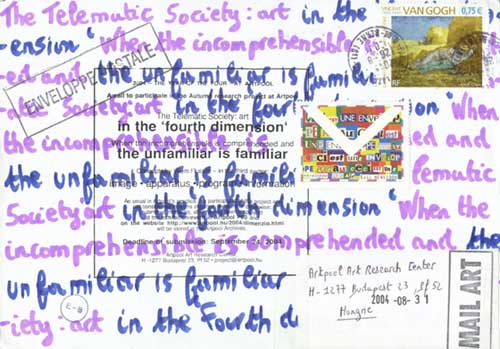 The Telematic Society: art in the
-ension" When the incomprehensible
ed and the unfamiliar is familiar
Society: art in the Fourth dimension" When
the incomprehensible is comprehended and
the unfamiliar is familiar
Society: art in the fourth dimension" When the
incomprehensible is comprehended and the
unfamiliar is familiar
-iety: art in the Fourth d
ENVELOPPE POSTALE
VINCENT VAN GOGH 0,75 €
RF
UNE ENVELOPPE
c'est
A call to participate in the Autumn research project at Artpool
The Telematic Society: art
in the 'fourth dimension'
When the incomprehensible is comprehended and
the unfamiliar is familiar
image - apparatus - program - information
on the website http://www.artpool.hu/2004/dimenzio.html
Deadline of submission: September 24, 2004
Artpool Art Research Center
H-1277 Budapest 23, Pf 52
E-8
Artpool Art Research Center
H-1277 Budapest 23, Pf 52
2004 -08- 31
Hongrie
MAIL ART